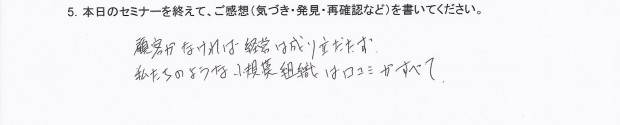 5. 本日のセミナーを終えて、ご感想（気づき・発見・再確認など）を書いてください。
顧客がなければ経営は成り立たず
私たちのような小規模組織は口コミがすべて